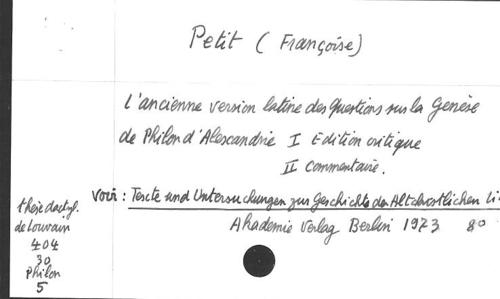 Petit ( Françoise)
L'ancienne version latine des Questions sur la Genèse
de Philon d'Alexandrie I Edition critique
II Commentaire.
Voir : Texte und Untersuchungen zur Geschichte der Altchristlichen Li
Akademie Verlag Berlin 1973 80
thèse dactyl.
de Louvain
404
30
Philon
5